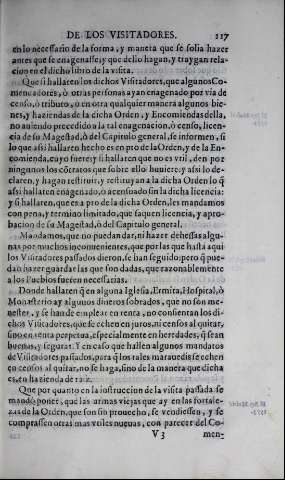 DE LOS VISITADORES. 117
en lo necessario de la forma, y manera que se solia hazer
antes que se enagenasse, y que dello hagan, y traygan rela-
cion en el dicho libro de la visita.
Que si hallaren los dichos Visitadores, que algunos Co-
mendadores, ò otras personas ayan enagenado por via de
censo, ò tributo, ò en otra qualquier manera algunos bie-
nes, y haziendas de la dicha Orden, y Encomiendas della,
no auiendo precedido a la tal enagenacion, ò censo, licen-
cia de su Magestad, ò del Capitulo general, se informen, si
lo que assi hallaren hecho es en pro de la Orden, y de la En-
comienda, cuyo fuere: y si hallaren que no es vtil, den por
ningunos los cõtratos que sobre ello huuiere: y assi lo de-
claren, y hagan restituir, y restituyan a la dicha Orden lo q̃
assi hallaren enagenado, ò acensuado sin la dicha licencia:
y si hallaren, que es a pro de la dicha Orden, les mandamos
con pena, y termino limitado, que saquen licencia, y apro-
bacion de su Magestad, ò del Capitulo general.
Mandamos, que no puedan dar, ni hazer dehessas algu-
nas por muchos inconuenientes, que por las que hasta aqui
los Visitadores passados dieron, se han seguido: pero q̃ pue-
dan hazer guardar las que son dadas, que razonablemente
a los Pueblos fuesen necessarias.
Donde hallaren q̃ en alguna Iglesia, Ermita, Hospital, ò
Monasterio ay algunos dineros sobrados, que no son me-
nester, y se han de emplear en renta, no consientan los di-
chos Visitadores, que se echen en juros, ni censos al quitar,
sino en renta perpetua, especialmente en heredades, q̃ sean
buenas, y seguras. Y en caso que hallen algunos mandatos
de Visitadores passados, para q̃ los tales marauedis se echen
en censos al quitar, no se haga, sino de la manera que dicha
es, en hazienda de raiz.
Que por quanto en la instruccion de la visita passada se
mandò poner, que las armas viejas que ay en las fortale-
zas de la Orden, que son sin prouecho, se vendiessen, y se
comprassen otras mas vtiles nueuas, con parecer del Co-
V 3 men-